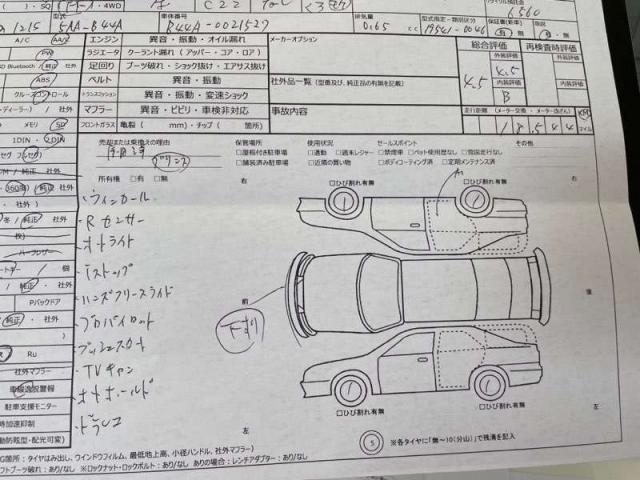 SQ
4WD
C22
なし
6560
型式
車体番号
排気量
型式指定・類別区分
1215
5AA-B44A
B44A-0021527
0.65 cc
19541-0046
有・無
A/C AA/S
エンジン 異音・振動・オイル漏れ
メーカーオプション
総合評価 再検査時評価
PW
ラジエータ クーラント漏れ(アッパー・コア・ロア)
外装評価 外装評価
SD Bluetooth / 純正・社外
足回り ブーツ破れ・ショック抜け・エアサス抜け
4.5
4.5
ABS
ベルト 異音・振動
社外品一覧 (型番及び、純正品の有無を記載)
内装評価 内装評価
クルーズコントロール
トランスミッション 異音・振動・変速ショック
B
ディーラー) / 社外
マフラー 異音・ビビリ・車検非対応
事故内容
走行距離 (メーター交換・メーター改ざん)
KM
マイル
メモリ SD
フロントガラス 亀裂( mm)・チップ( 箇所)
18544
1DIN・2DIN
売却または乗換えの理由
保管場所 使用状況 セールスポイント その他
セグ フルセグ
□屋根付き駐車場 □通勤 □週末レジャー □禁煙車 □ペット使用歴なし □雪道走行なし
/ 純正・社外
□舗装済み駐車場 □近隣の買い物 □ボディコーティング済 □定期メンテナンス済
360用 / 純正
所有権 □有 □無
右
□ひび割れ有無
□ひび割れ有無
右
・社外 )
ウィンカール
A1
Rセンサー
/ 純正・社外
オートライト
枚)
Iストップ
ハーフレザー
ハンズフリースライド
ートキー / 個
前
後
純正・ )
プロパイロット
下まわり
Pバックドア
プッシュスタート
純正・社外
TVキャン
Ru
オートホールド
社外マフラー
ドラレコ
車線逸脱警報
駐車支援モニター
□ひび割れ有無
□ひび割れ有無
時加速抑制
左
左
動防眩型・配光可変)
5 ※各タイヤに「無~10(分山)」で残溝を記入
G箇所:タイヤはみ出し、ウインドウフィルム、最低地上高、小径ハンドル、社外マフラー)
フトブーツ破れ:あり/なし ※ロックナット・ロックボルト:あり/なし ありの場合:レンチアダプター:あり/なし